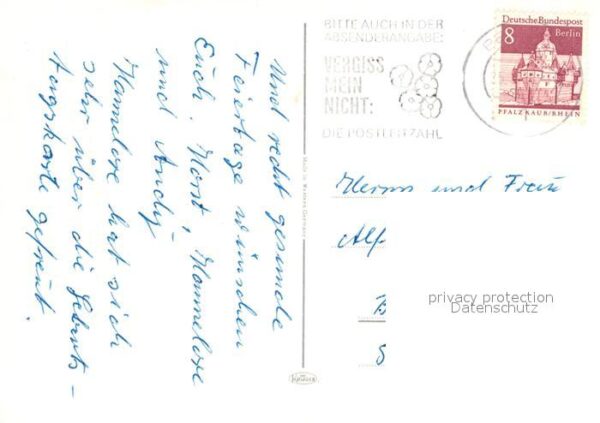 Und recht gesunde
Feiertage wünschen
Euch. Horst, Hannelore
und Andy
Hannelore hat sich
sehr über die Geburts-
tagskarte gefreut.
BITTE AUCH IN DER
ABSENDERANGABE:
VERGISS
MEIN
NICHT:
DIE POSTLEITZAHL
Deutsche Bundespost
8 Berlin
PFALZ KAUB/RHEIN
Made in Western Germany
Herrn und Frau
Alf
privacy protection
Datenschutz